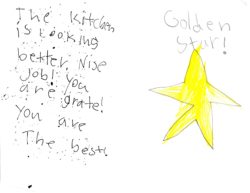 The kitchen
is looking
better. Nise
job! you
are grate!
you are
The best!
Golden
star!